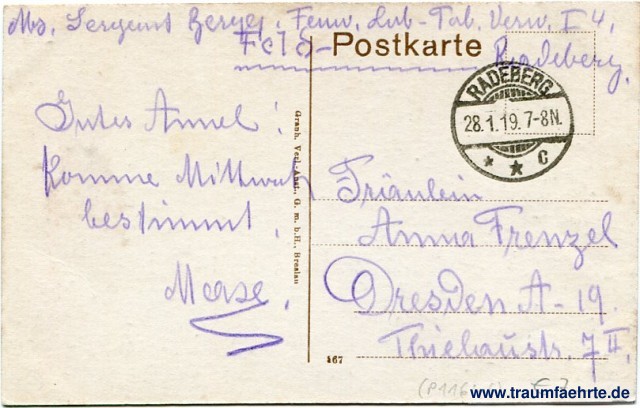 Abs. Sergeant Berger. Feuw. Lab-Tab. Verw. I 4,
Feld- Postkarte Radeberg.
RADEBERG
28.1.19.7-8N.
* * c
Gutes Annel!
Komme Mittwoch
bestimmt.
Graph. Verl.-Anst., G. m. b. H., Breslau
Fräulein
Anna Frenzel
Dresden A-19.
str. 7 II.
467
www.traumfaehrte.de